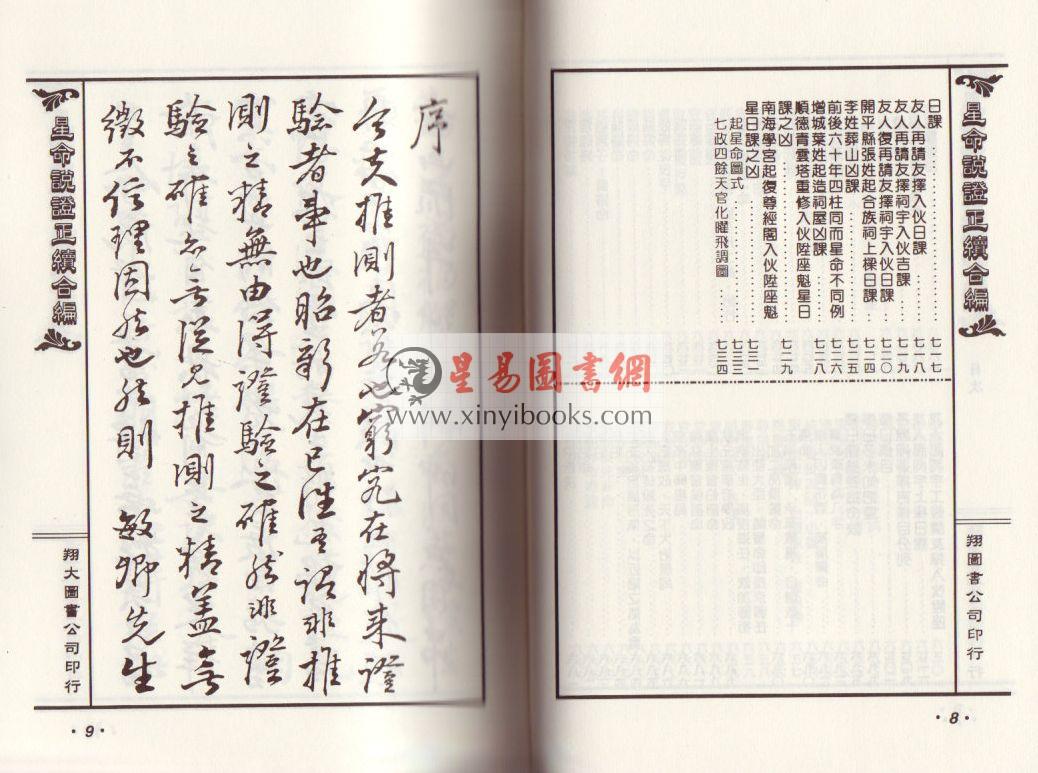 星命說證正續合編
翔圖書公司印行
·8·
日課……七一七
友人再請友擇入伙日課……七一八
友人再請友擇祠宇入伙吉課……七一九
友人復再請友擇祠宇入伙日課……七二〇
開平縣張姓起合族祠上樑日課……七二四
李姓葬山凶課……七二五
前後六十年四柱同而星命不同例……七二六
增城葉姓起造祠屋凶課……七二八
順德青雲塔重修入伙陞座魁星日
課之凶……七二九
南海學宮起復尊經閣入伙陞座魁
星日課之凶……七三一
起星命圖式……七三三
七政四餘天官化曜飛調圖……七三四
星易圖書網
www.xinyibooks.com
序
今夫推測者也窮究在將來證
驗者事也昭彰在已往吾謂非推
測之精無由得證驗之確然非證
驗之確亦無從見推測之精蓋無
徵不信理固然也然則敏卿先生
星命說證正續合編
翔大圖書公司印行
·9·